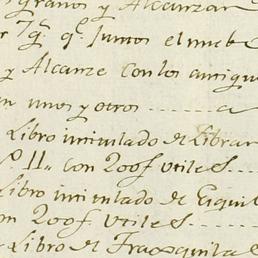 granos y Alcanzar
q.e Juntos el nueb
y Alcanze con los amigu
n unos y otros ...... a
Libro inintulado de Librar
o 11,, con 200f utiles. ....
Libro inintulado de Esquil
on 200f. utiles ......
Libro de Trasquila